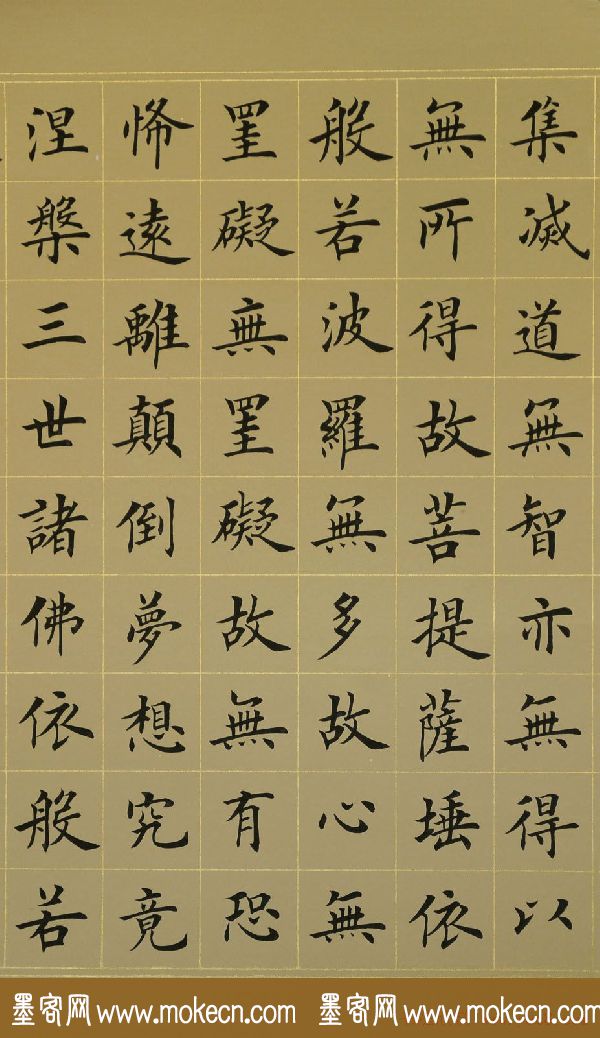 集滅道無智亦無得以
無所得故菩提薩埵依
般若波羅無多故心無
罣礙無罣礙故無有恐
怖遠離顛倒夢想究竟
涅槃三世諸佛依般若
墨客网www.mokecn.com 墨客网www.mokecn.com